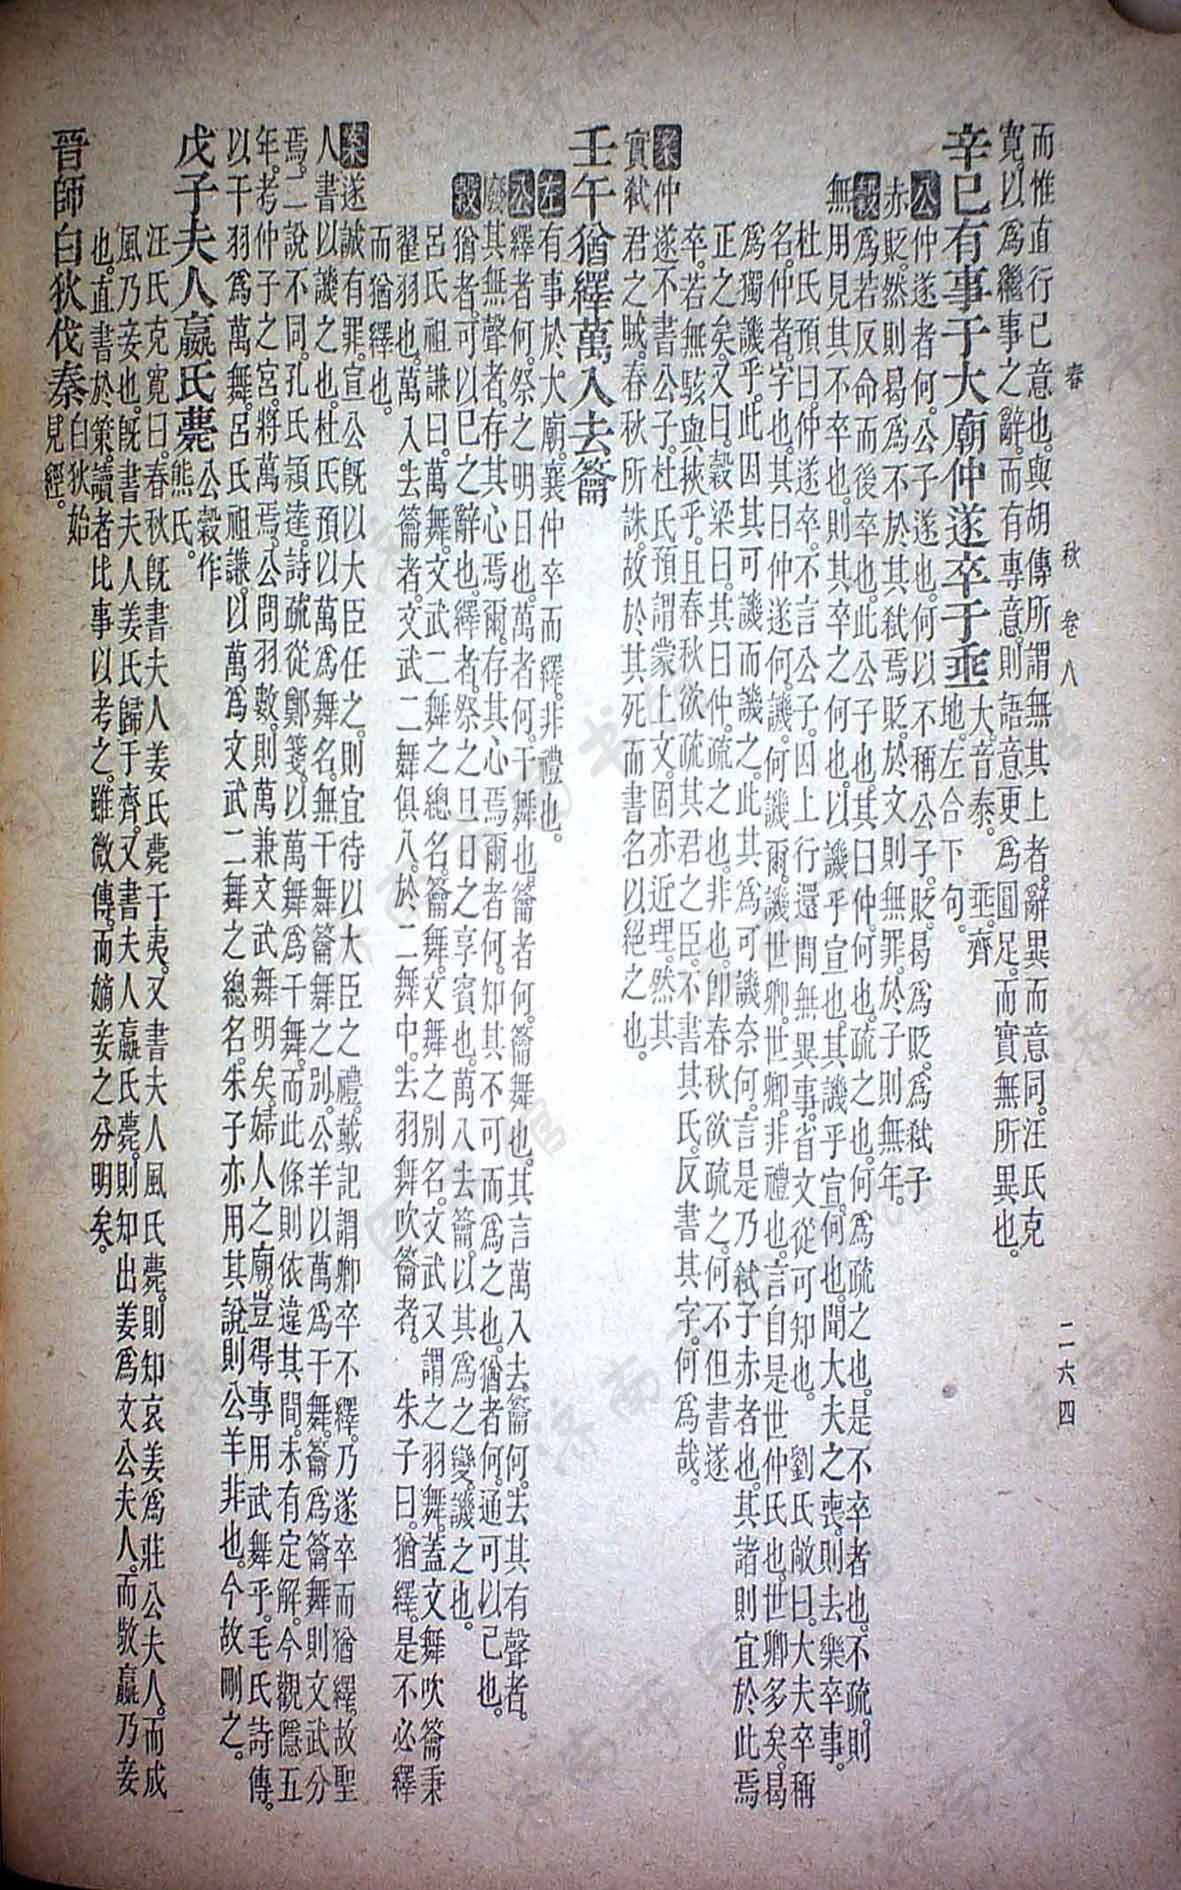 春秋 卷八 二六四
而惟直行已意也與胡傳所謂無其上者辭異而意同汪氏克
寬以爲繼事之辭而有專意則語意更爲圓足而實無所異也。
辛巳有事于大廟仲遂卒于垂 大音泰。垂齊
地。左合下句。
公 仲遂者何公子遂也何以不稱公子貶曷爲貶爲弒子
赤貶然則曷爲不於其弒焉貶於文則無罪於子則無年。
穀 爲若反命而後卒也此公子也其曰仲何也疏之也何爲疏之也是不卒者也不疏則
無用見其不卒也則其卒之何也以譏乎宣也其譏乎宣何也聞大夫之喪則去樂卒事。
杜氏預曰仲遂卒不言公子因上行還間無異事省文從可知也。 劉氏敞曰大夫卒稱
名仲者字也其曰仲遂何譏何譏爾譏世卿世卿非禮也言自是世仲氏也世卿多矣曷
爲獨譏乎此因其可譏而譏之此其爲可譏奈何言是乃弒子赤者也其諸則宜於此焉
正之矣又曰穀梁曰其曰仲疏之也非也卽春秋欲疏之何不但書遂
卒若無駭與挾乎且春秋欲疏其君之臣不書其氏反書其字何爲哉。
案 仲遂不書公子杜氏預謂蒙上文固亦近理然其
實弒君之賊春秋所誅故於其死而書名以絕之也。
壬午猶繹萬入去籥
左 有事於大廟襄仲卒而繹非禮也。
公 繹者何祭之明日也萬者何干舞也籥者何籥舞也其言萬入去籥何去其有聲者。
廢其無聲者存其心焉爾存其心焉爾者何知其不可而爲之也猶者何通可以已也。
穀 猶者可以已之辭也繹者祭之旦日之享賓也萬入去籥以其爲之變譏之也。
呂氏祖謙曰萬舞文武二舞之總名籥舞文舞之別名文武又謂之羽舞蓋文舞吹籥秉
翟羽也萬入去籥者文武二舞俱入於二舞中去羽舞吹籥者。 朱子曰猶繹是不必繹
而猶繹也。
案 遂誠有罪宣公旣以大臣任之則宜待以大臣之禮戴記謂卿卒不繹乃遂卒而猶繹故聖
人書以譏之也杜氏預以萬爲舞名無干舞籥舞之別公羊以萬爲干舞籥爲籥舞則文武分
焉二說不同孔氏穎達詩疏從鄭箋以萬舞爲干舞而此條則依違其間未有定解今觀隱五
年考仲子之宮將萬焉公問羽數則萬兼文武舞明矣婦人之廟豈得專用武舞乎毛氏詩傳
以干羽爲萬舞呂氏祖謙以萬爲文武二舞之總名朱子亦用其說則公羊非也今故刪之。
戊子夫人嬴氏薨 公穀作
熊氏。
汪氏克寬曰春秋旣書夫人姜氏薨于夷又書夫人風氏薨則知哀姜爲莊公夫人而成
風乃妾也旣書夫人姜氏歸于齊又書夫人嬴氏薨則知出姜爲文公夫人而敬嬴乃妾
也直書於策讀者比事以考之雖微傳而嫡妾之分明矣。
晉師白狄伐秦 白狄始
見經。